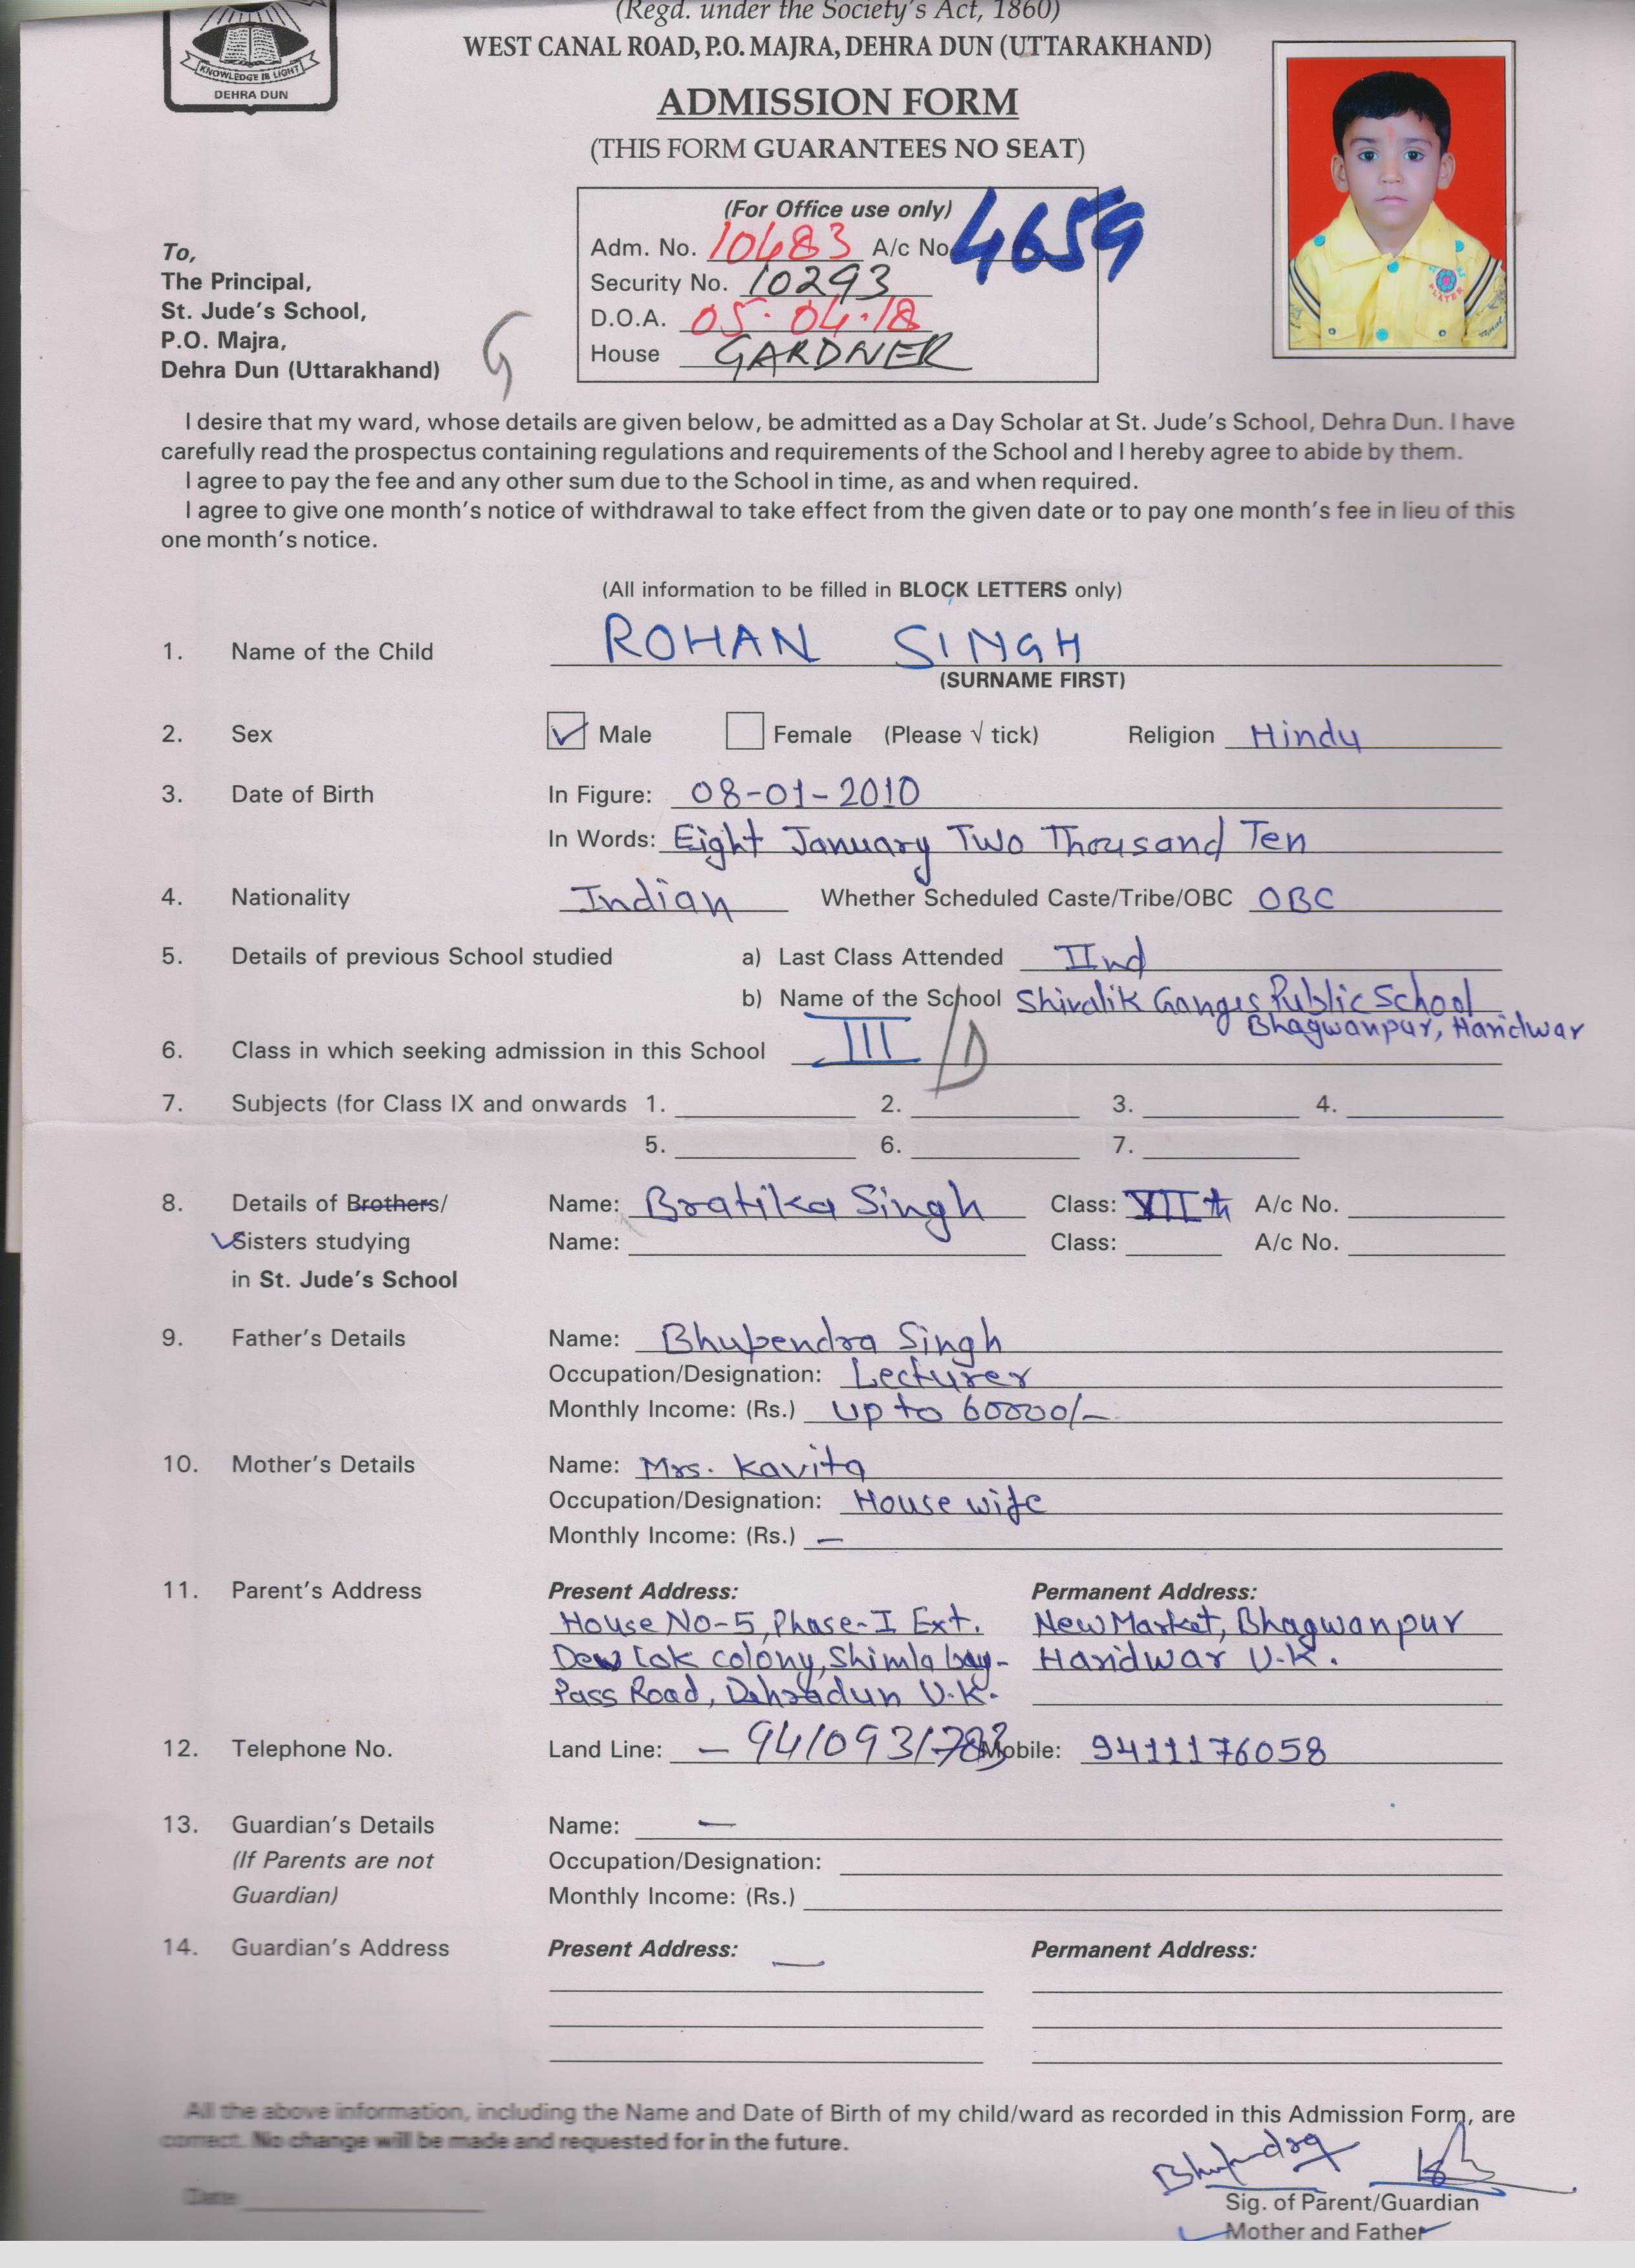 (Regd. under the Society's Act, 1860)
WEST CANAL ROAD, P.O. MAJRA, DEHRA DUN (UTTARAKHAND)
KNOWLEDGE IS LIGHT
DEHRA DUN
ADMISSION FORM
(THIS FORM GUARANTEES NO SEAT)
(For Office use only)
Adm. No. 10483 A/c No. 4659
Security No. 10293
D.O.A. 05.04.18
House GARDNER
To,
The Principal,
St. Jude's School,
P.O. Majra,
Dehra Dun (Uttarakhand)
G
I desire that my ward, whose details are given below, be admitted as a Day Scholar at St. Jude's School, Dehra Dun. I have
carefully read the prospectus containing regulations and requirements of the School and I hereby agree to abide by them.
I agree to pay the fee and any other sum due to the School in time, as and when required.
I agree to give one month's notice of withdrawal to take effect from the given date or to pay one month's fee in lieu of this
one month's notice.
(All information to be filled in BLOCK LETTERS only)
1. Name of the Child ROHAN SINGH
(SURNAME FIRST)
2. Sex Male Female (Please √ tick) Religion Hindu
3. Date of Birth In Figure: 08-01-2010
In Words: Eight January Two Thousand Ten
4. Nationality Indian Whether Scheduled Caste/Tribe/OBC OBC
5. Details of previous School studied a) Last Class Attended IInd
b) Name of the School Shivalik Ganges Public School
Bhagwanpur, Haridwar
6. Class in which seeking admission in this School III /D
7. Subjects (for Class IX and onwards 1. 2. 3. 4.
5. 6. 7.
8. Details of Brothers/ Name: Bratika Singh Class: VIIth A/c No.
Sisters studying Name: Class: A/c No.
in St. Jude's School
9. Father's Details Name: Bhupendra Singh
Occupation/Designation: Lecturer
Monthly Income: (Rs.) up to 60000/-
10. Mother's Details Name: Mrs. Kavita
Occupation/Designation: House wife
Monthly Income: (Rs.) —
11. Parent's Address Present Address: Permanent Address:
House No-5, Phase-I Ext. New Market, Bhagwanpur
Dew Lok colony, Shimla bay- Haridwar U.K.
Pass Road, Dehradun U.K.
12. Telephone No. Land Line: – 9410931783 Mobile: 9411176058
13. Guardian's Details Name: —
(If Parents are not Occupation/Designation:
Guardian) Monthly Income: (Rs.)
14. Guardian's Address Present Address: — Permanent Address:
All the above information, including the Name and Date of Birth of my child/ward as recorded in this Admission Form, are
correct. No change will be made and requested for in the future.
Bhupendra
Date
Sig. of Parent/Guardian
Mother and Father